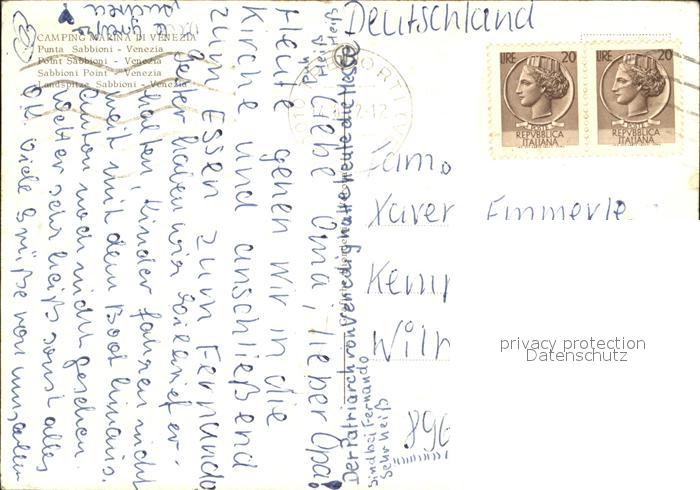 CAMPING MARINA DI VENEZIA
Punta Sabbioni - Venezia
Point Sabbioni - Venezia
Sabbioni Point - Venezia
Landspitze Sabbioni - Venezia
Deutschland
LIRE 20
LIRE 20
POSTE
REPVBBLICA
ITALIANA
POSTE
REPVBBLICA
ITALIANA
Fam.
Xaver Emmerle
Kemp
Wilh
896
privacy protection
Datenschutz
Liebe Oma, lieber Opa!
Heute gehen wir in die
Kirche und anschließend
zum Essen zum Fernando
haben wir Brief er-
halten, Kinder fahren nicht
weit mit dem Boot hinaus.
Anton noch nicht gesehen.
Wetter sehr heiß sonst alles
OK Viele Grüße von uns allen
Der Patriarch von Venedig hatte heute die Messe.
Sind bei Fernando
Sehr heiß
Heiß
Heiß